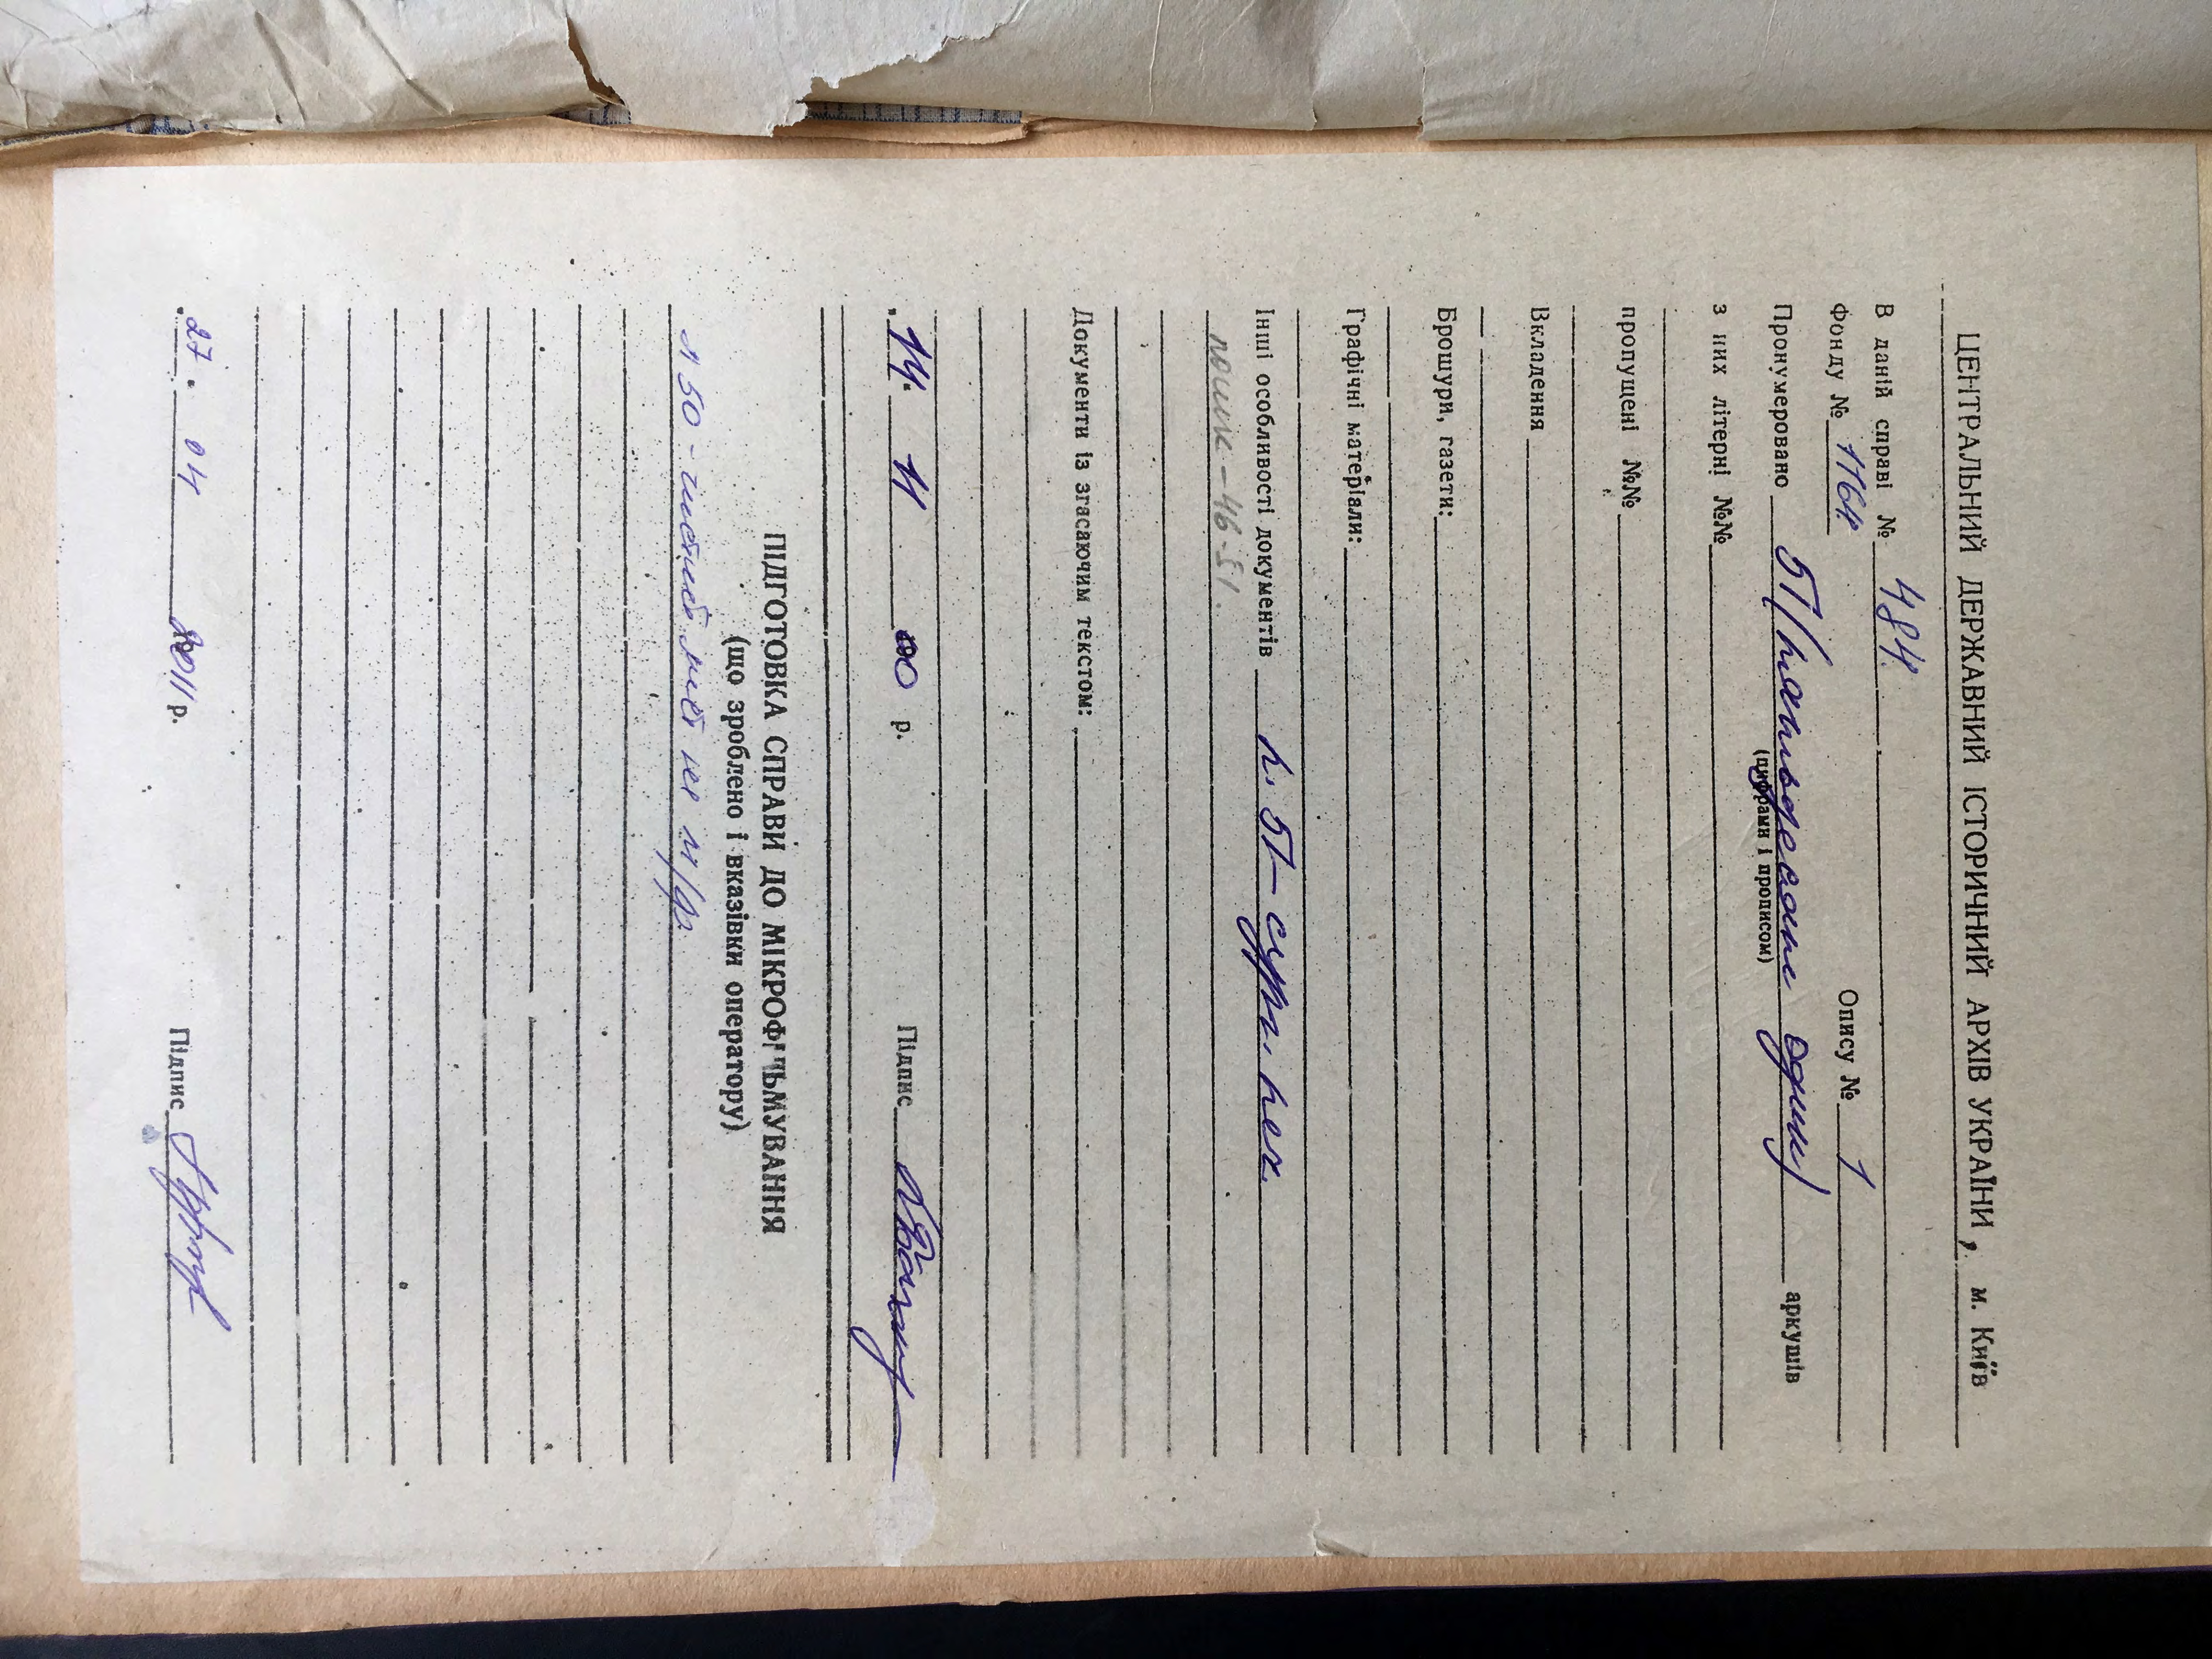 ЦЕНТРАЛЬНИЙ ДЕРЖАВНИЙ ІСТОРИЧНИЙ АРХІВ УКРАЇНИ, м. Київ
В даній справі № 484
Фонду № 1164 Опису № 1
Пронумеровано 51 /п'ятьдесят один/ аркушів
(цифрами і прописом)
з них літерні №№
пропущені №№
Вкладення
Брошури, газети:
Графічні матеріали:
Інші особливості документів л. 51 – сург. печ.
- 46-51.
Документи із згасаючим текстом:
14. 11 00 р. Підпис
ПІДГОТОВКА СПРАВИ ДО МІКРОФІЛЬМУВАННЯ
(що зроблено і вказівки оператору)
50 -
27. 04 2011 р. Підпис